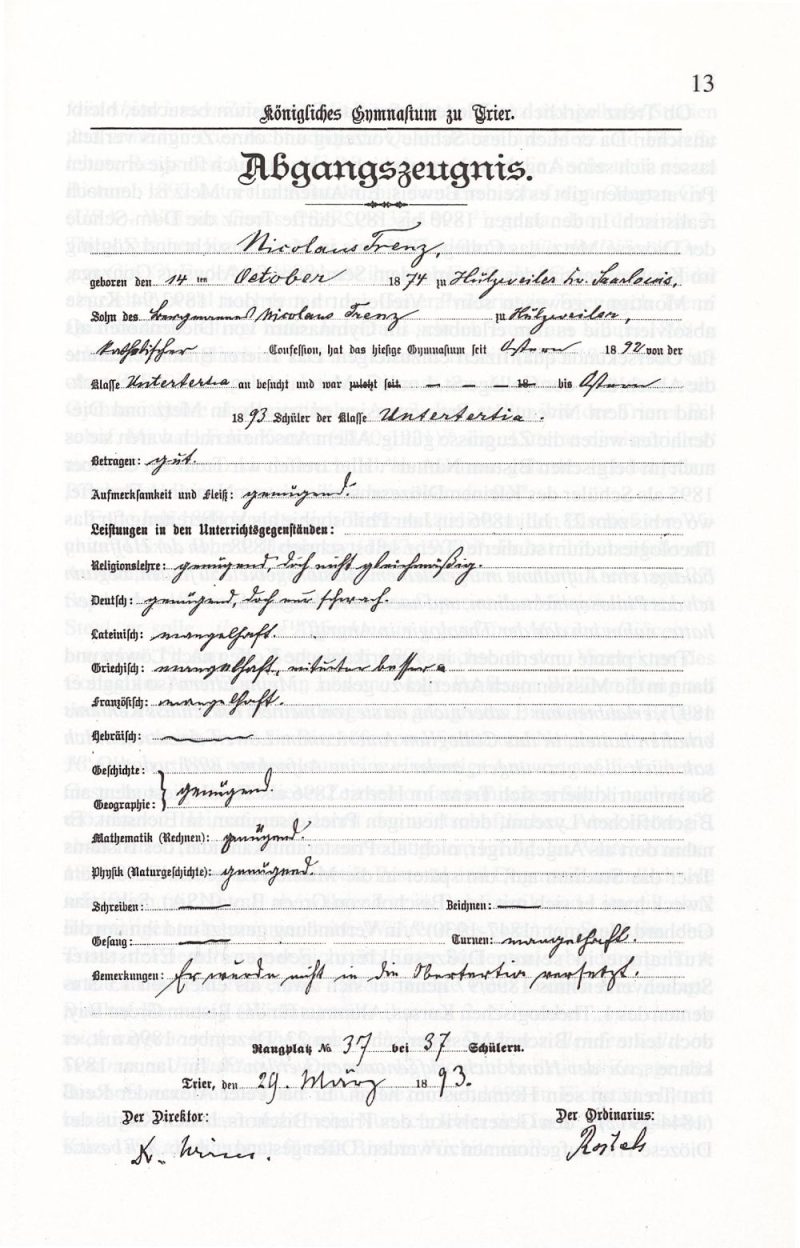 13
Königliches Gymnasium zu Trier.
Abgangszeugnis.
Nicolaus Trenz,
geboren den 14 ten October 1874 zu Hülzweiler Kr. Saarlouis,
Sohn des Bergmannes Nicolaus Trenz zu Hülzweiler,
katholischer Confession, hat das hiesige Gymnasium seit Ostern 1892 von der
Klasse Untertertia an besucht und war zuletzt seit — — — 18— bis Ostern
1893 Schüler der Klasse Untertertia.
Betragen: gut
Aufmerksamkeit und Fleiß: genügend.
Leistungen in den Unterrichtsgegenständen:
Religionslehre: genügend, doch nicht gleichmäßig.
Deutsch: genügend, doch nur schwach.
Lateinisch: mangelhaft.
Griechisch: mangelhaft, mitunter besser
Französisch: mangelhaft.
Hebräisch: —
Geschichte:
Geographie: } genügend.
Mathematik (Rechnen): genügend.
Physik (Naturgeschichte): genügend.
Schreiben: — Zeichnen: —
Gesang: — Turnen: mangelhaft.
Bemerkungen: Er wurde nicht in die Obertertia versetzt.
Rangplatz № 37 bei 37 Schülern.
Trier, den 29. März 1893.
Der Direktor: Der Ordinarius: